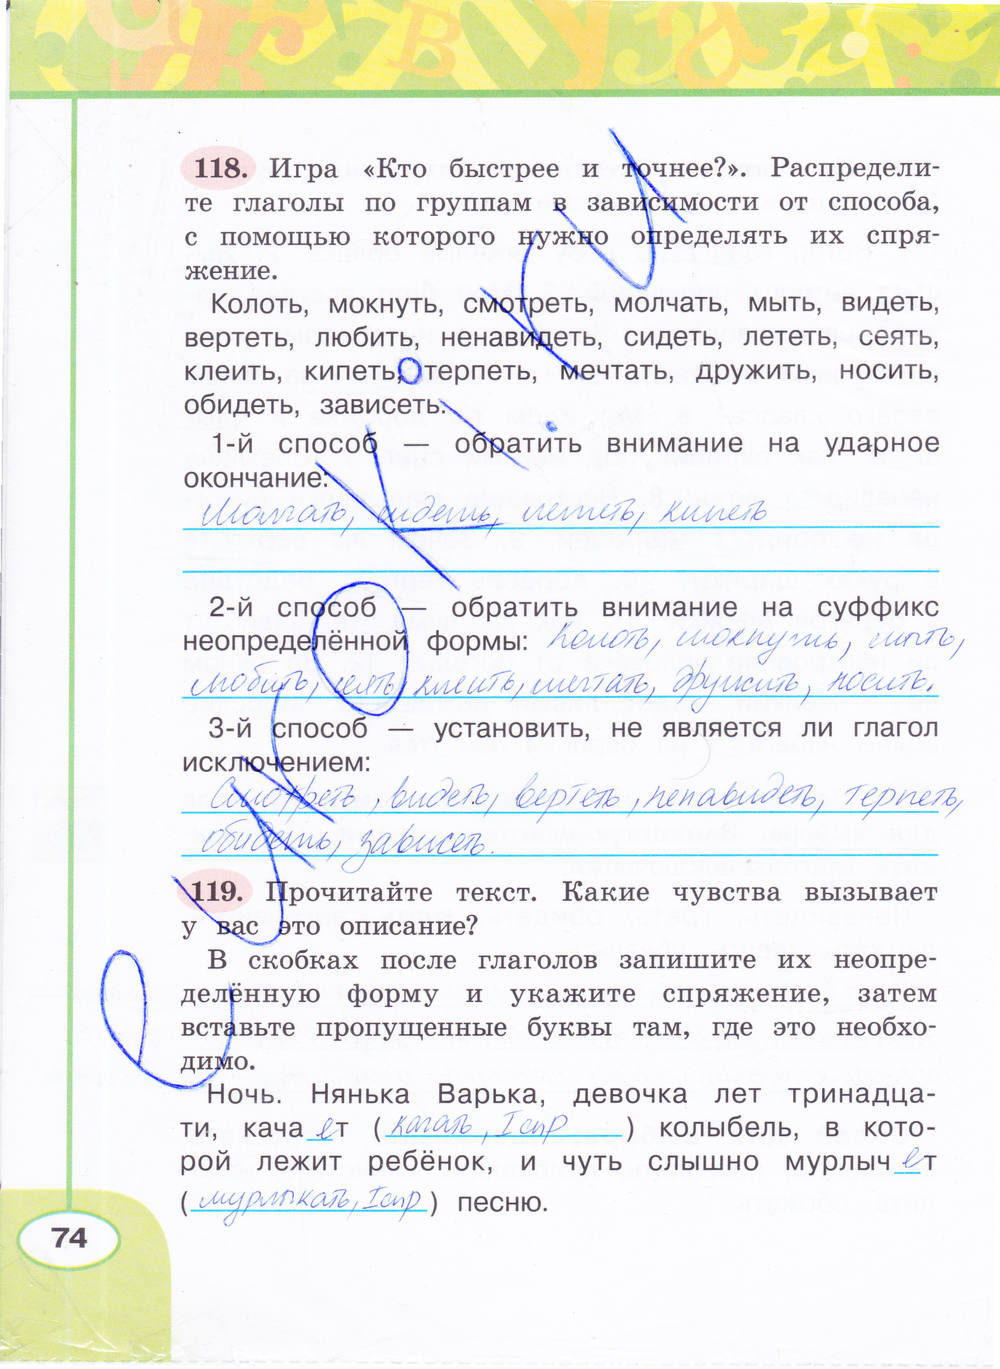 118. Игра «Кто быстрее и точнее?». Распредели-
те глаголы по группам в зависимости от способа,
с помощью которого нужно определять их спря-
жение.
Колоть, мокнуть, смотреть, молчать, мыть, видеть,
вертеть, любить, ненавидеть, сидеть, лететь, сеять,
клеить, кипеть, терпеть, мечтать, дружить, носить,
обидеть, зависеть.
1-й способ — обратить внимание на ударное
окончание:
Молчать, сидеть, лететь, кипеть
2-й способ — обратить внимание на суффикс
неопределённой формы: Колоть, мокнуть, мыть,
любить, сеять, клеить, мечтать, дружить, носить.
3-й способ — установить, не является ли глагол
исключением:
Смотреть, видеть, вертеть, ненавидеть, терпеть,
обидеть, зависеть.
119. Прочитайте текст. Какие чувства вызывает
у вас это описание?
В скобках после глаголов запишите их неопре-
делённую форму и укажите спряжение, затем
вставьте пропущенные буквы там, где это необхо-
димо.
Ночь. Нянька Варька, девочка лет тринадца-
ти, качает (качать, I спр) колыбель, в кото-
рой лежит ребёнок, и чуть слышно мурлычет
(мурлыкать, I спр) песню.
74